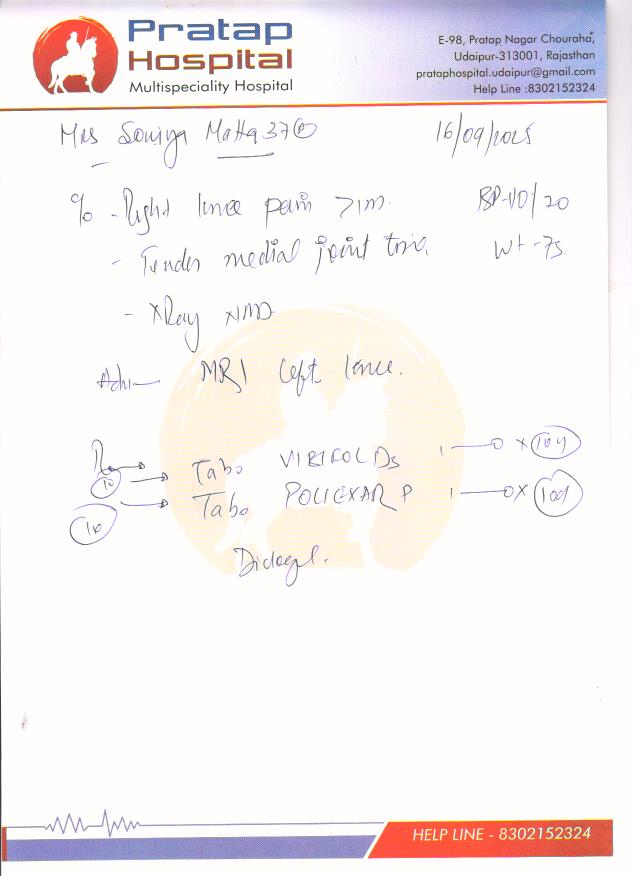 Pratap
Hospital
Multispeciality Hospital
E-98, Pratap Nagar Chouraha,
Udaipur-313001, Rajasthan
prataphospital.udaipur@gmail.com
Help Line :8302152324
Mrs Matta 37
16/09/2025
- Right knee pain >1m. BP-110/70
- Tender medial joint line. Wt-75
- XRay NAD
Adv- MRI Left knee.
Rx
10 Tab. DS 1-0 x 10d
10 Tab. P 1-0 x 10d
HELP LINE - 8302152324